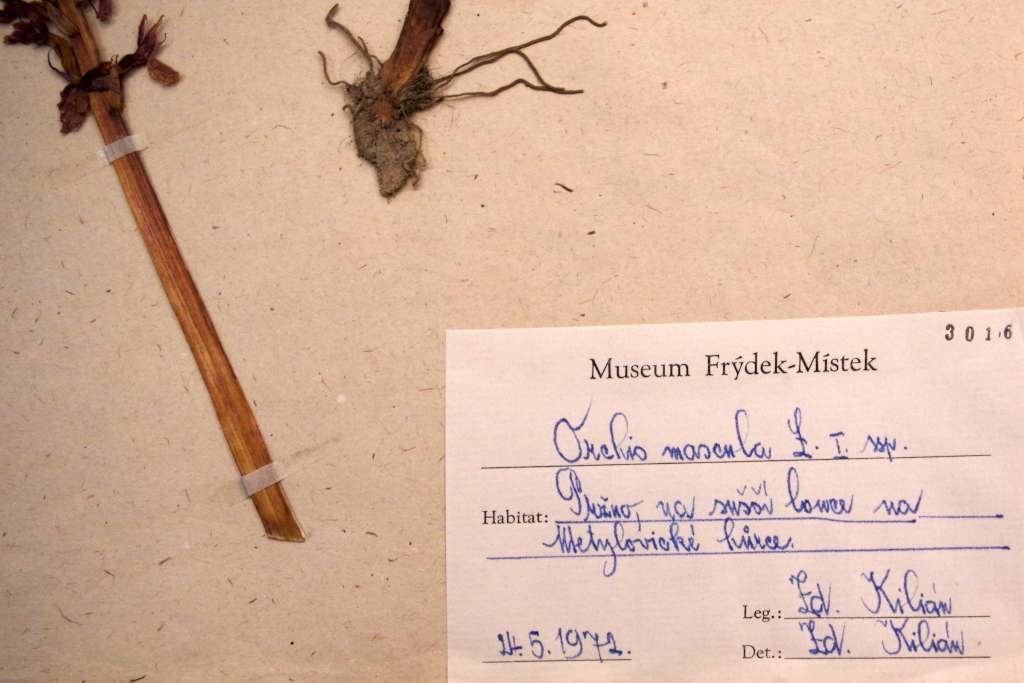 3016
Museum Frýdek-Místek
Orchis mascula L. I. ssp.
Habitat: Pržno, na sušší louce na
Metylovické hůrce.
Leg.: Zd. Kilián
24.5.1972. Det.: Zd. Kilián